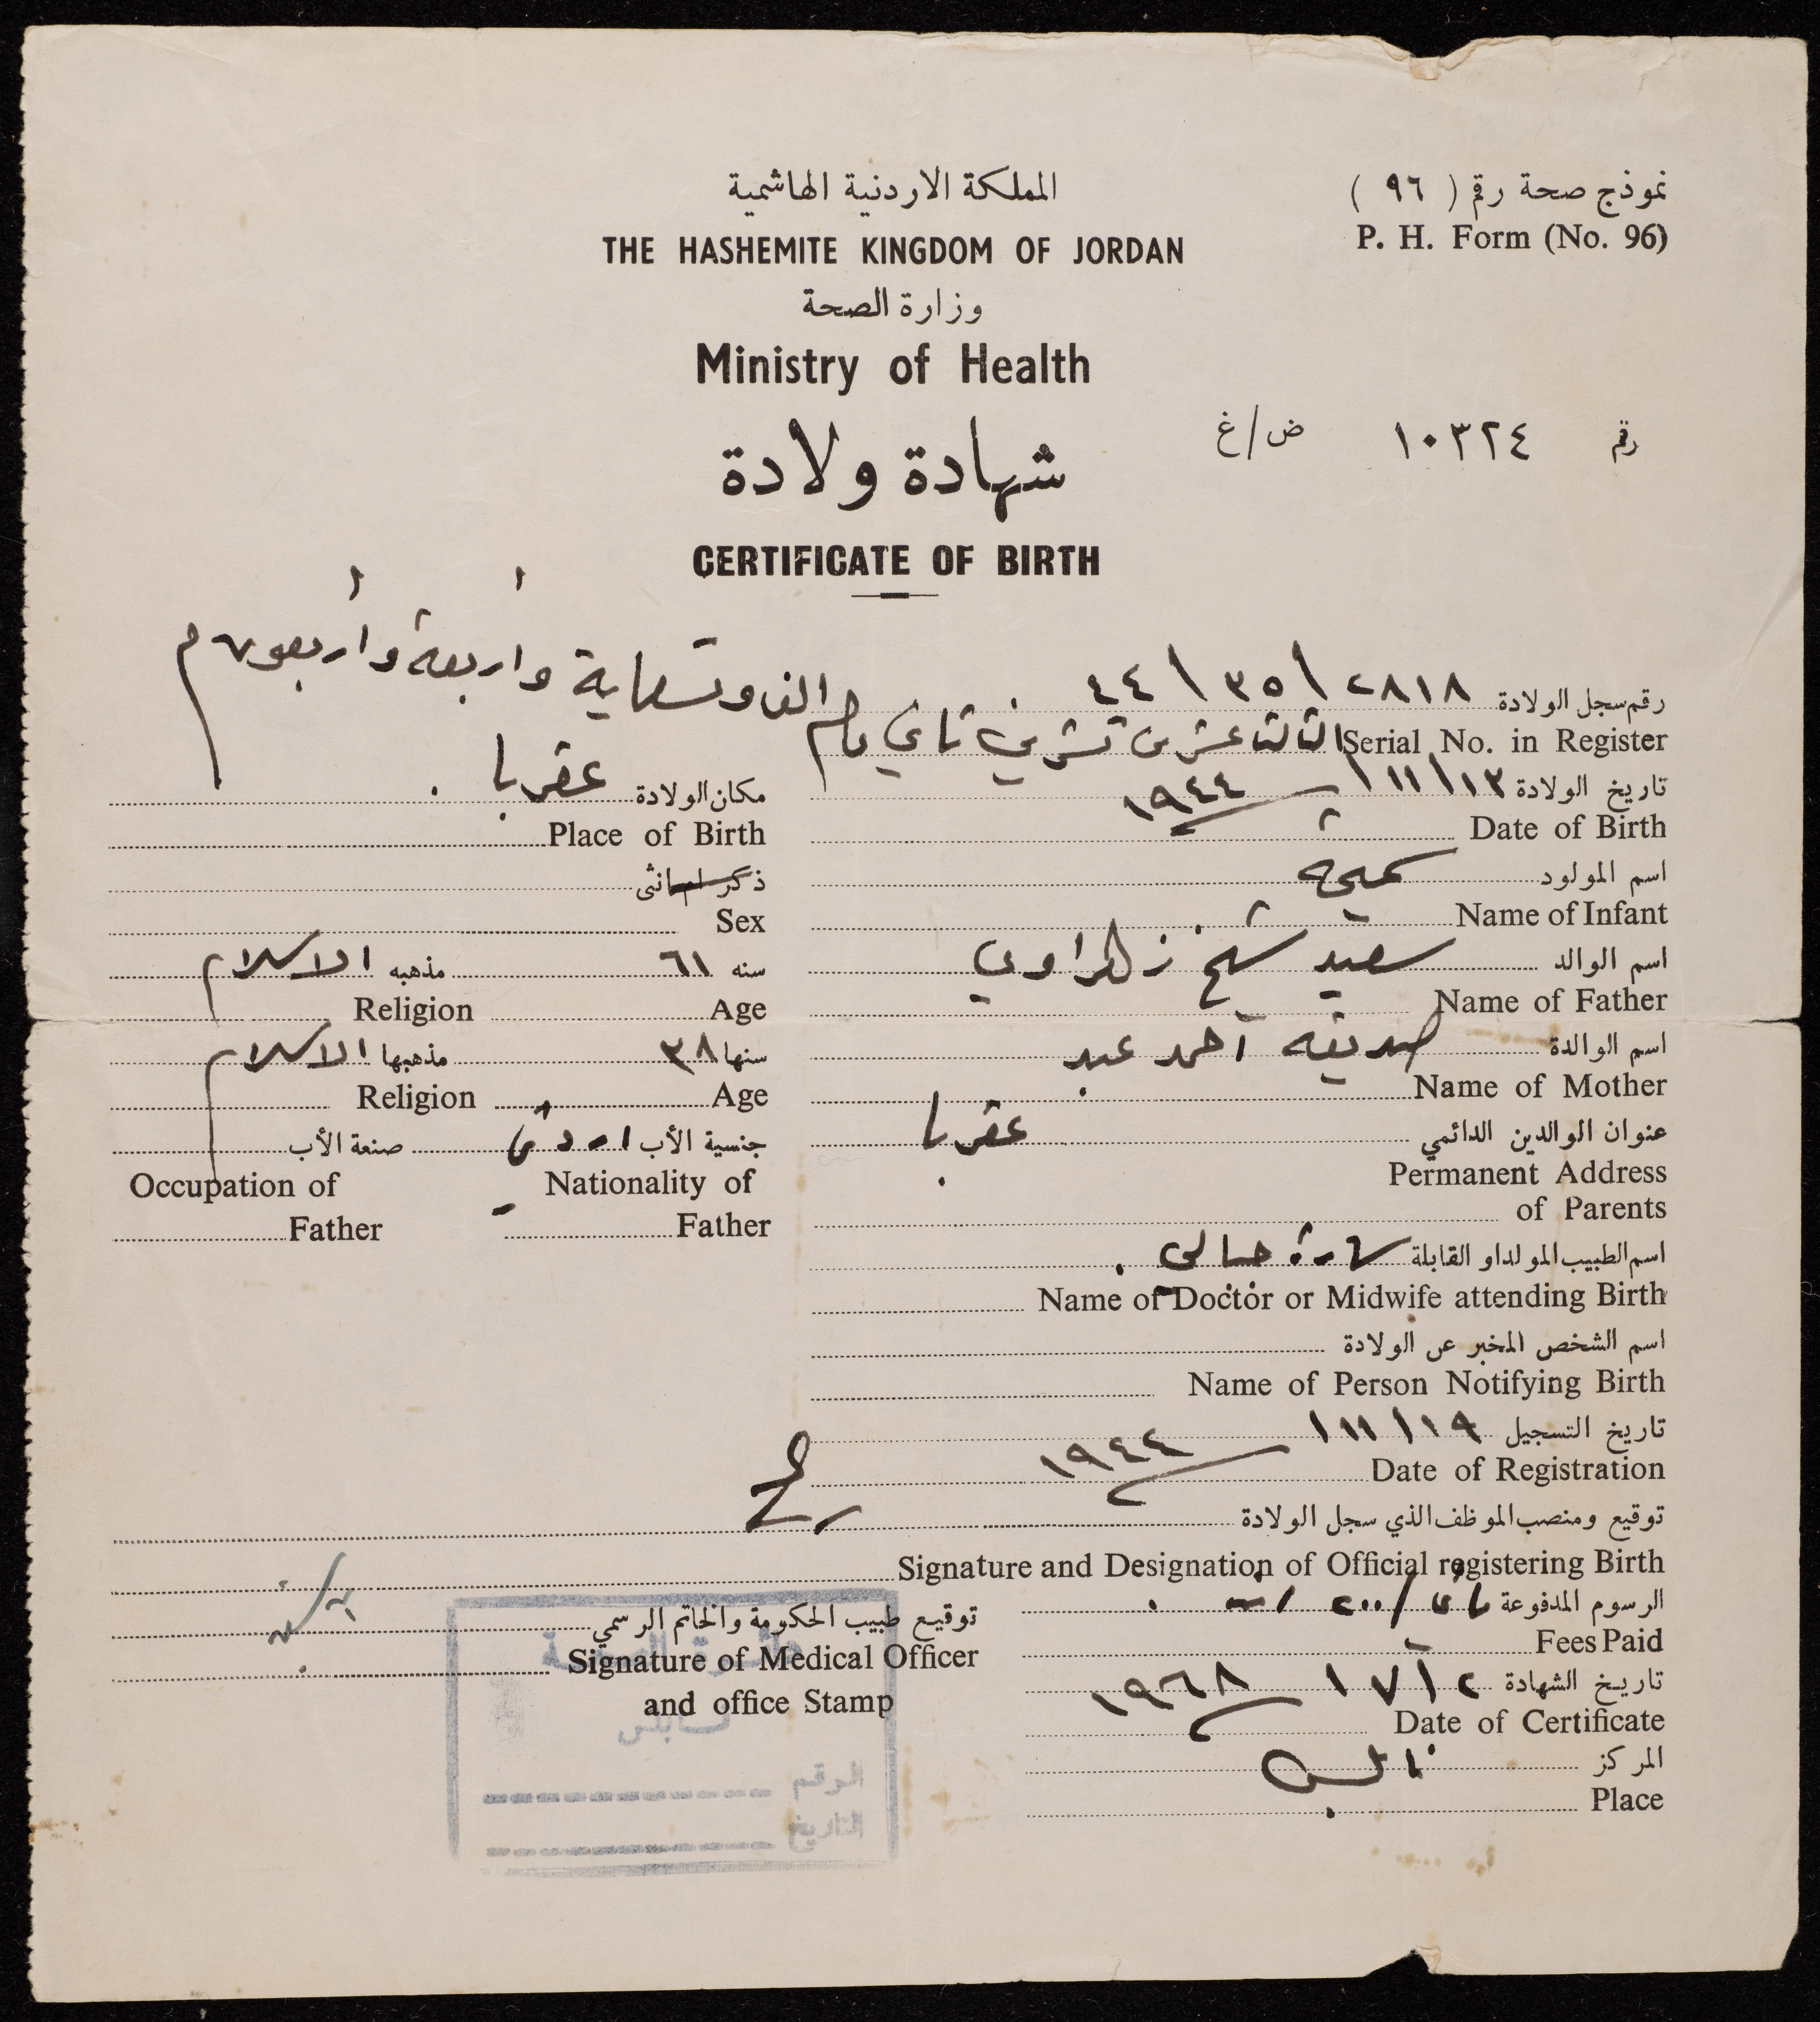 نموذج صحة رقم ( ٩٦ )
P. H. Form (No. 96)
المملكة الاردنية الهاشمية
THE HASHEMITE KINGDOM OF JORDAN
وزارة الصحة
Ministry of Health
رقم ١٠٣٢٤ ض/غ
شهادة ولادة
CERTIFICATE OF BIRTH
رقم سجل الولادة ٢٨١٨ / ٣٥ / ٤٤
Serial No. in Register
الثالث عشر من تشرين ثاني عام الف وتسعماية وأربعة وأربعون م
تاريخ الولادة ١٣/١١/١٩٤٤
Date of Birth
مكان الولادة عقربا
Place of Birth
اسم المولود سميحه
Name of Infant
ذكر ام انثى
Sex
اسم الوالد سعيد شيخ زهراوي
Name of Father
سنه ٦١ مذهبه الاسلام
Age Religion
اسم الوالدة صديقه احمد عبد
Name of Mother
سنها ٣٨ مذهبها الاسلام
Age Religion
عنوان الوالدين الدائمي عقربا
Permanent Address
of Parents
جنسية الأب اردني صنعة الأب
Nationality of Father
Occupation of Father
اسم الطبيب المولد او القابلة سارة
Name of Doctor or Midwife attending Birth
اسم الشخص المخبر عن الولادة
Name of Person Notifying Birth
تاريخ التسجيل ١٩/١١/١٩٤٤
Date of Registration
توقيع ومنصب الموظف الذي سجل الولادة
Signature and Designation of Official registering Birth
الرسوم المدفوعة
Fees Paid
تاريخ الشهادة ٢/٧/١٩٦٨
Date of Certificate
المركز نابلس
Place
توقيع طبيب الحكومة والخاتم الرسمي
Signature of Medical Officer
and office Stamp
دائرة الصحة
نابلس
الرقم
التاريخ